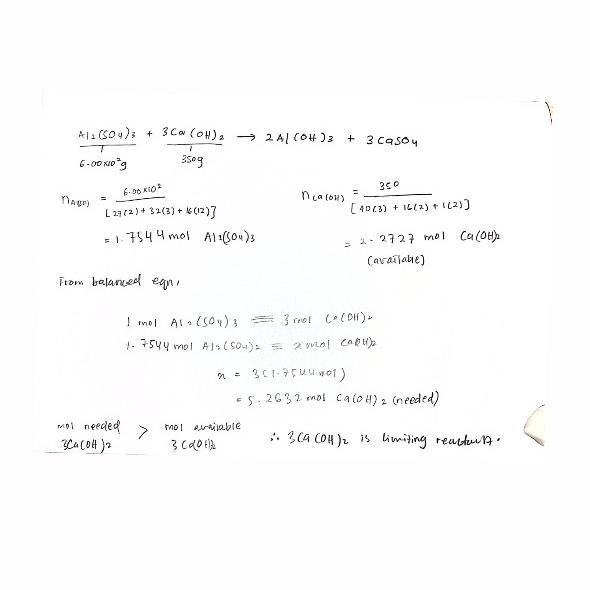 Al2(SO4)3 + 3Ca(OH)2 → 2Al(OH)3 + 3CaSO4
6.00x10²g 350g
nAl(SO) = 6.00x10² / [27(2) + 32(3) + 16(12)]
= 1.7544 mol Al2(SO4)3
nCa(OH) = 350 / [40(3) + 16(2) + 1(2)]
= 2.2727 mol Ca(OH)2
(available)
From balanced eqn,
1 mol Al2(SO4)3 ≡ 3 mol Ca(OH)2
1.7544 mol Al2(SO4)2 ≡ x mol Ca(OH)2
x = 3(1.7544 mol)
= 5.2632 mol Ca(OH)2 (needed)
mol needed > mol available
3Ca(OH)2 3Ca(OH)2
∴ 3Ca(OH)2 is limiting